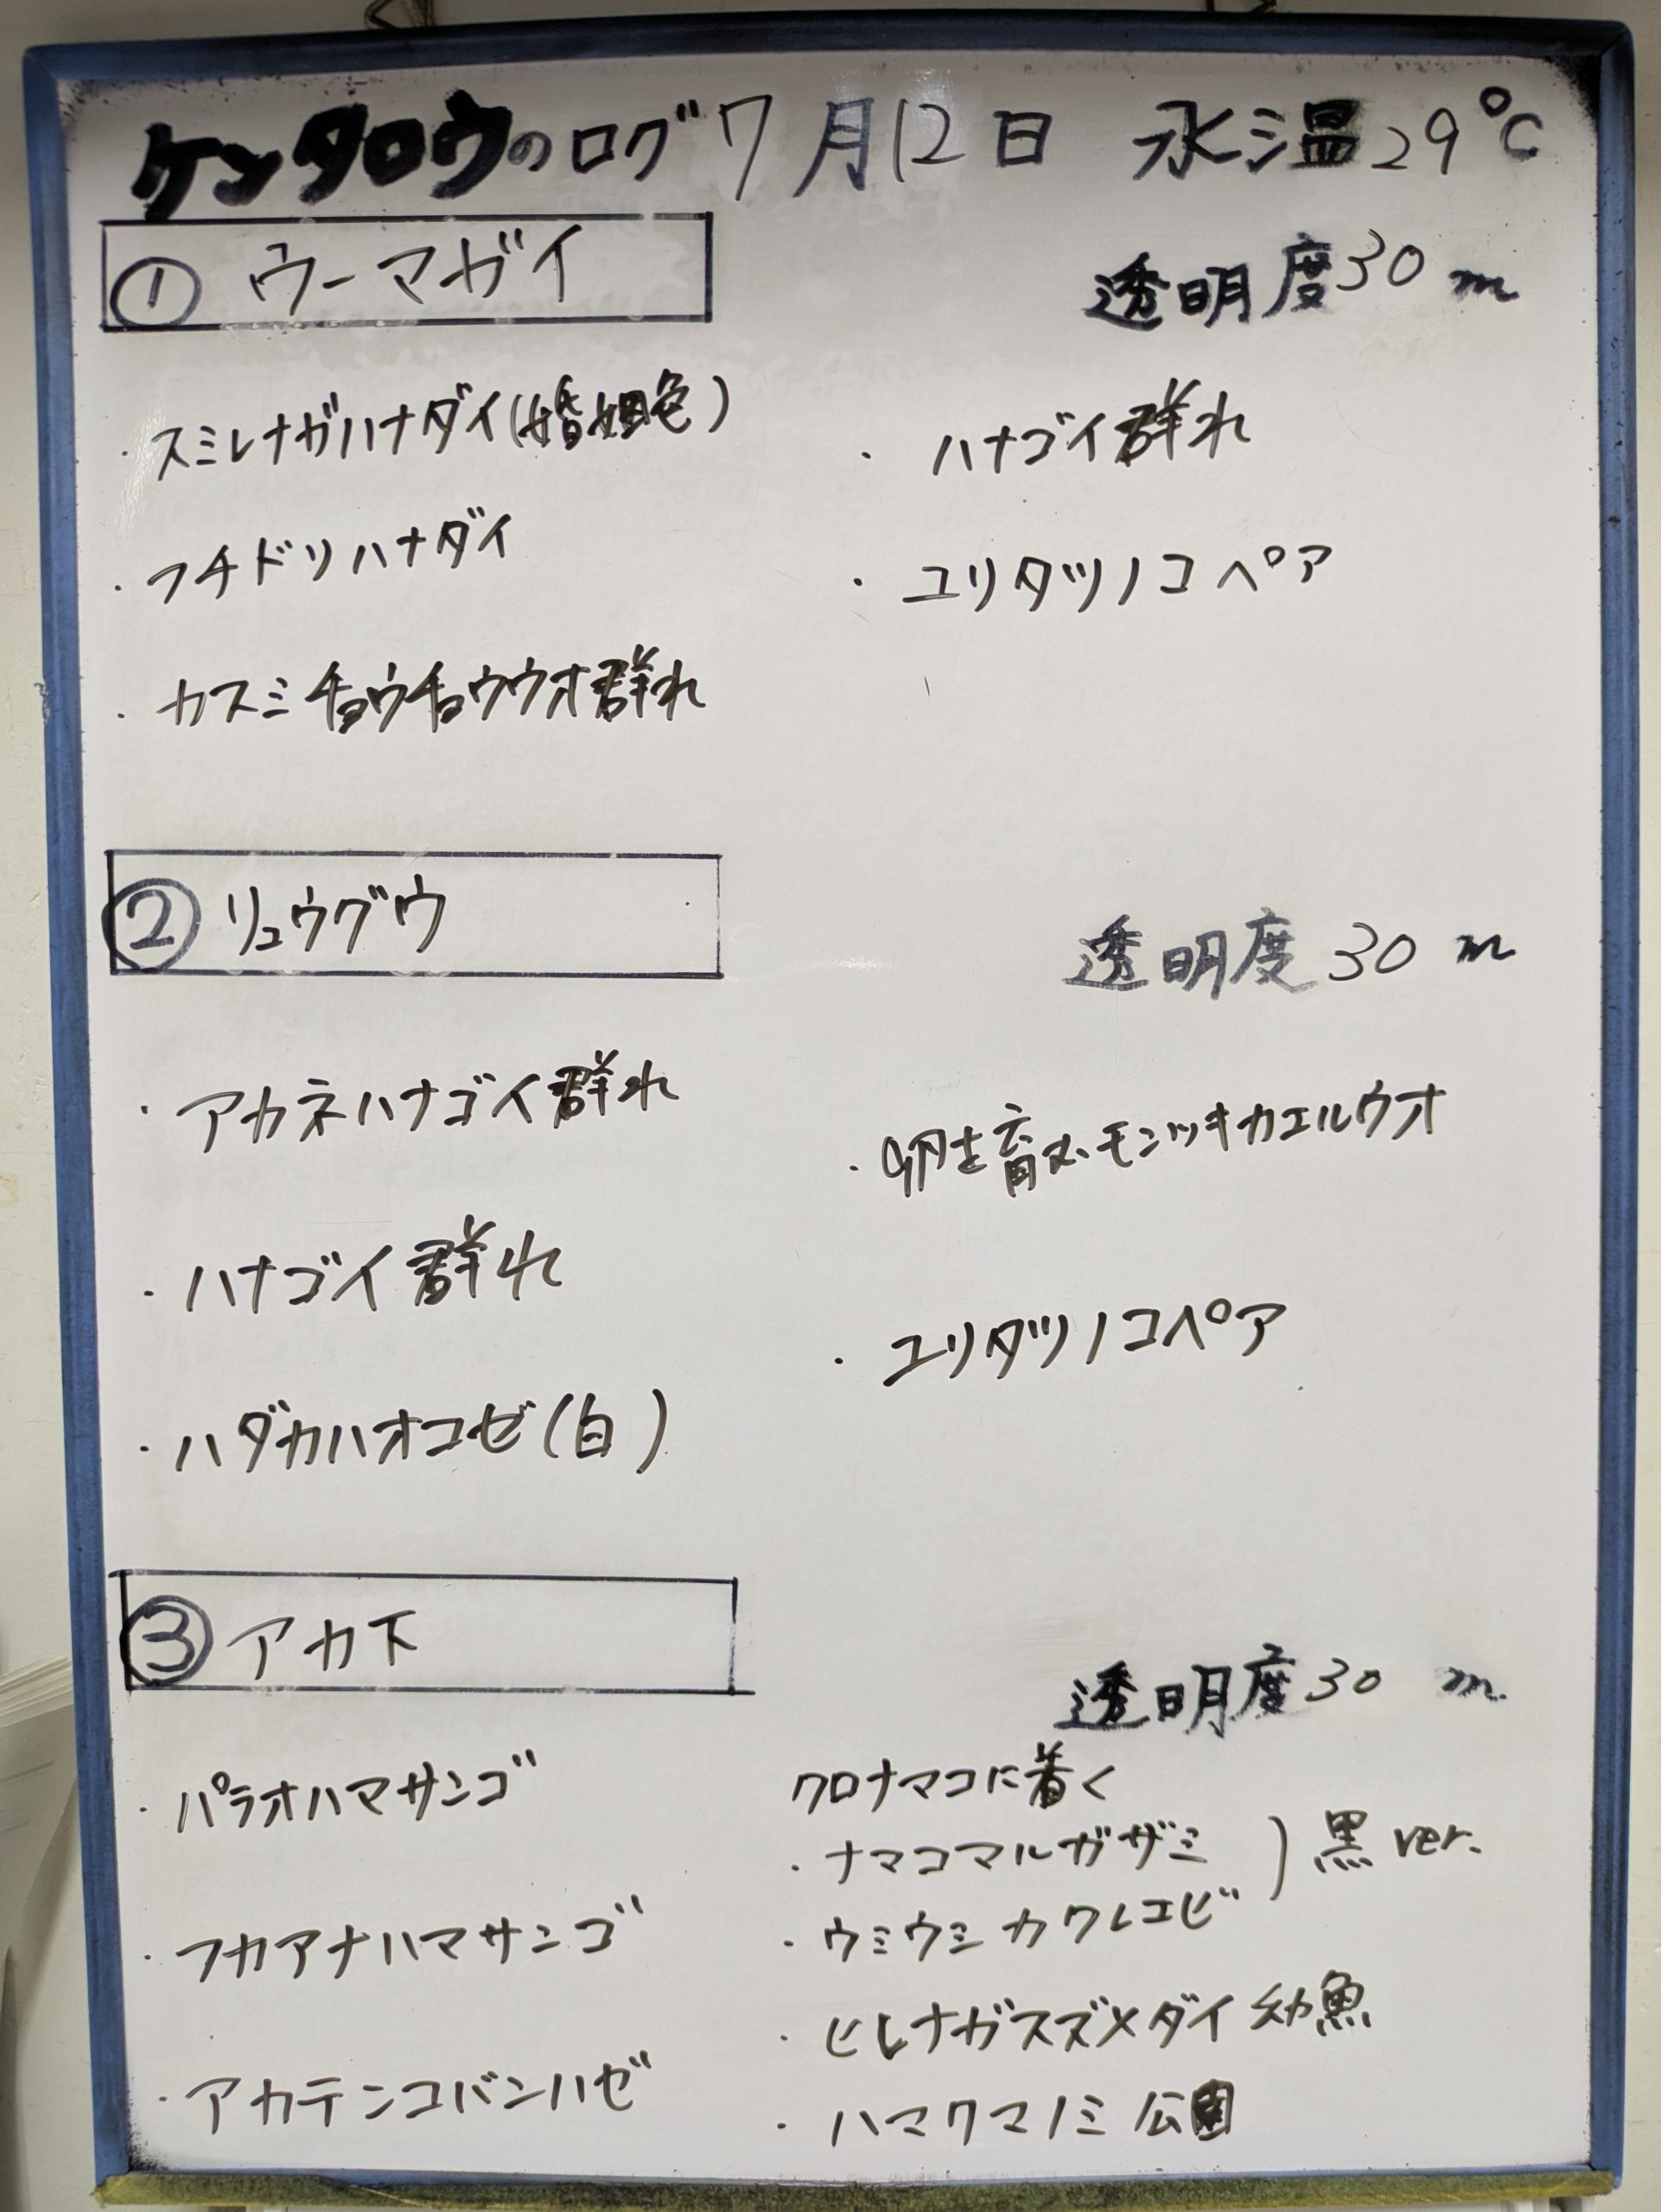 ケンタロウのログ 7月12日 水温29℃
① ウーマガイ
透明度30m
・スミレナガハナダイ(婚姻色)
・フチドリハナダイ
・カスミチョウチョウウオ群れ
・ハナゴイ群れ
・ユリタツノコペア
② リュウグウ
透明度30m
・アカネハナゴイ群れ
・ハナゴイ群れ
・ハダカハオコゼ(白)
・卵を育むモンツキカエルウオ
・ユリタツノコペア
③ アカ下
透明度30m
・パラオハマサンゴ
・フカアナハマサンゴ
・アカテンコバンハゼ
クロナマコに着く
・ナマコマルガザミ
・ウミウシカクレエビ
)黒ver.
・ヒレナガスズメダイ幼魚
・ハマクマノミ公園